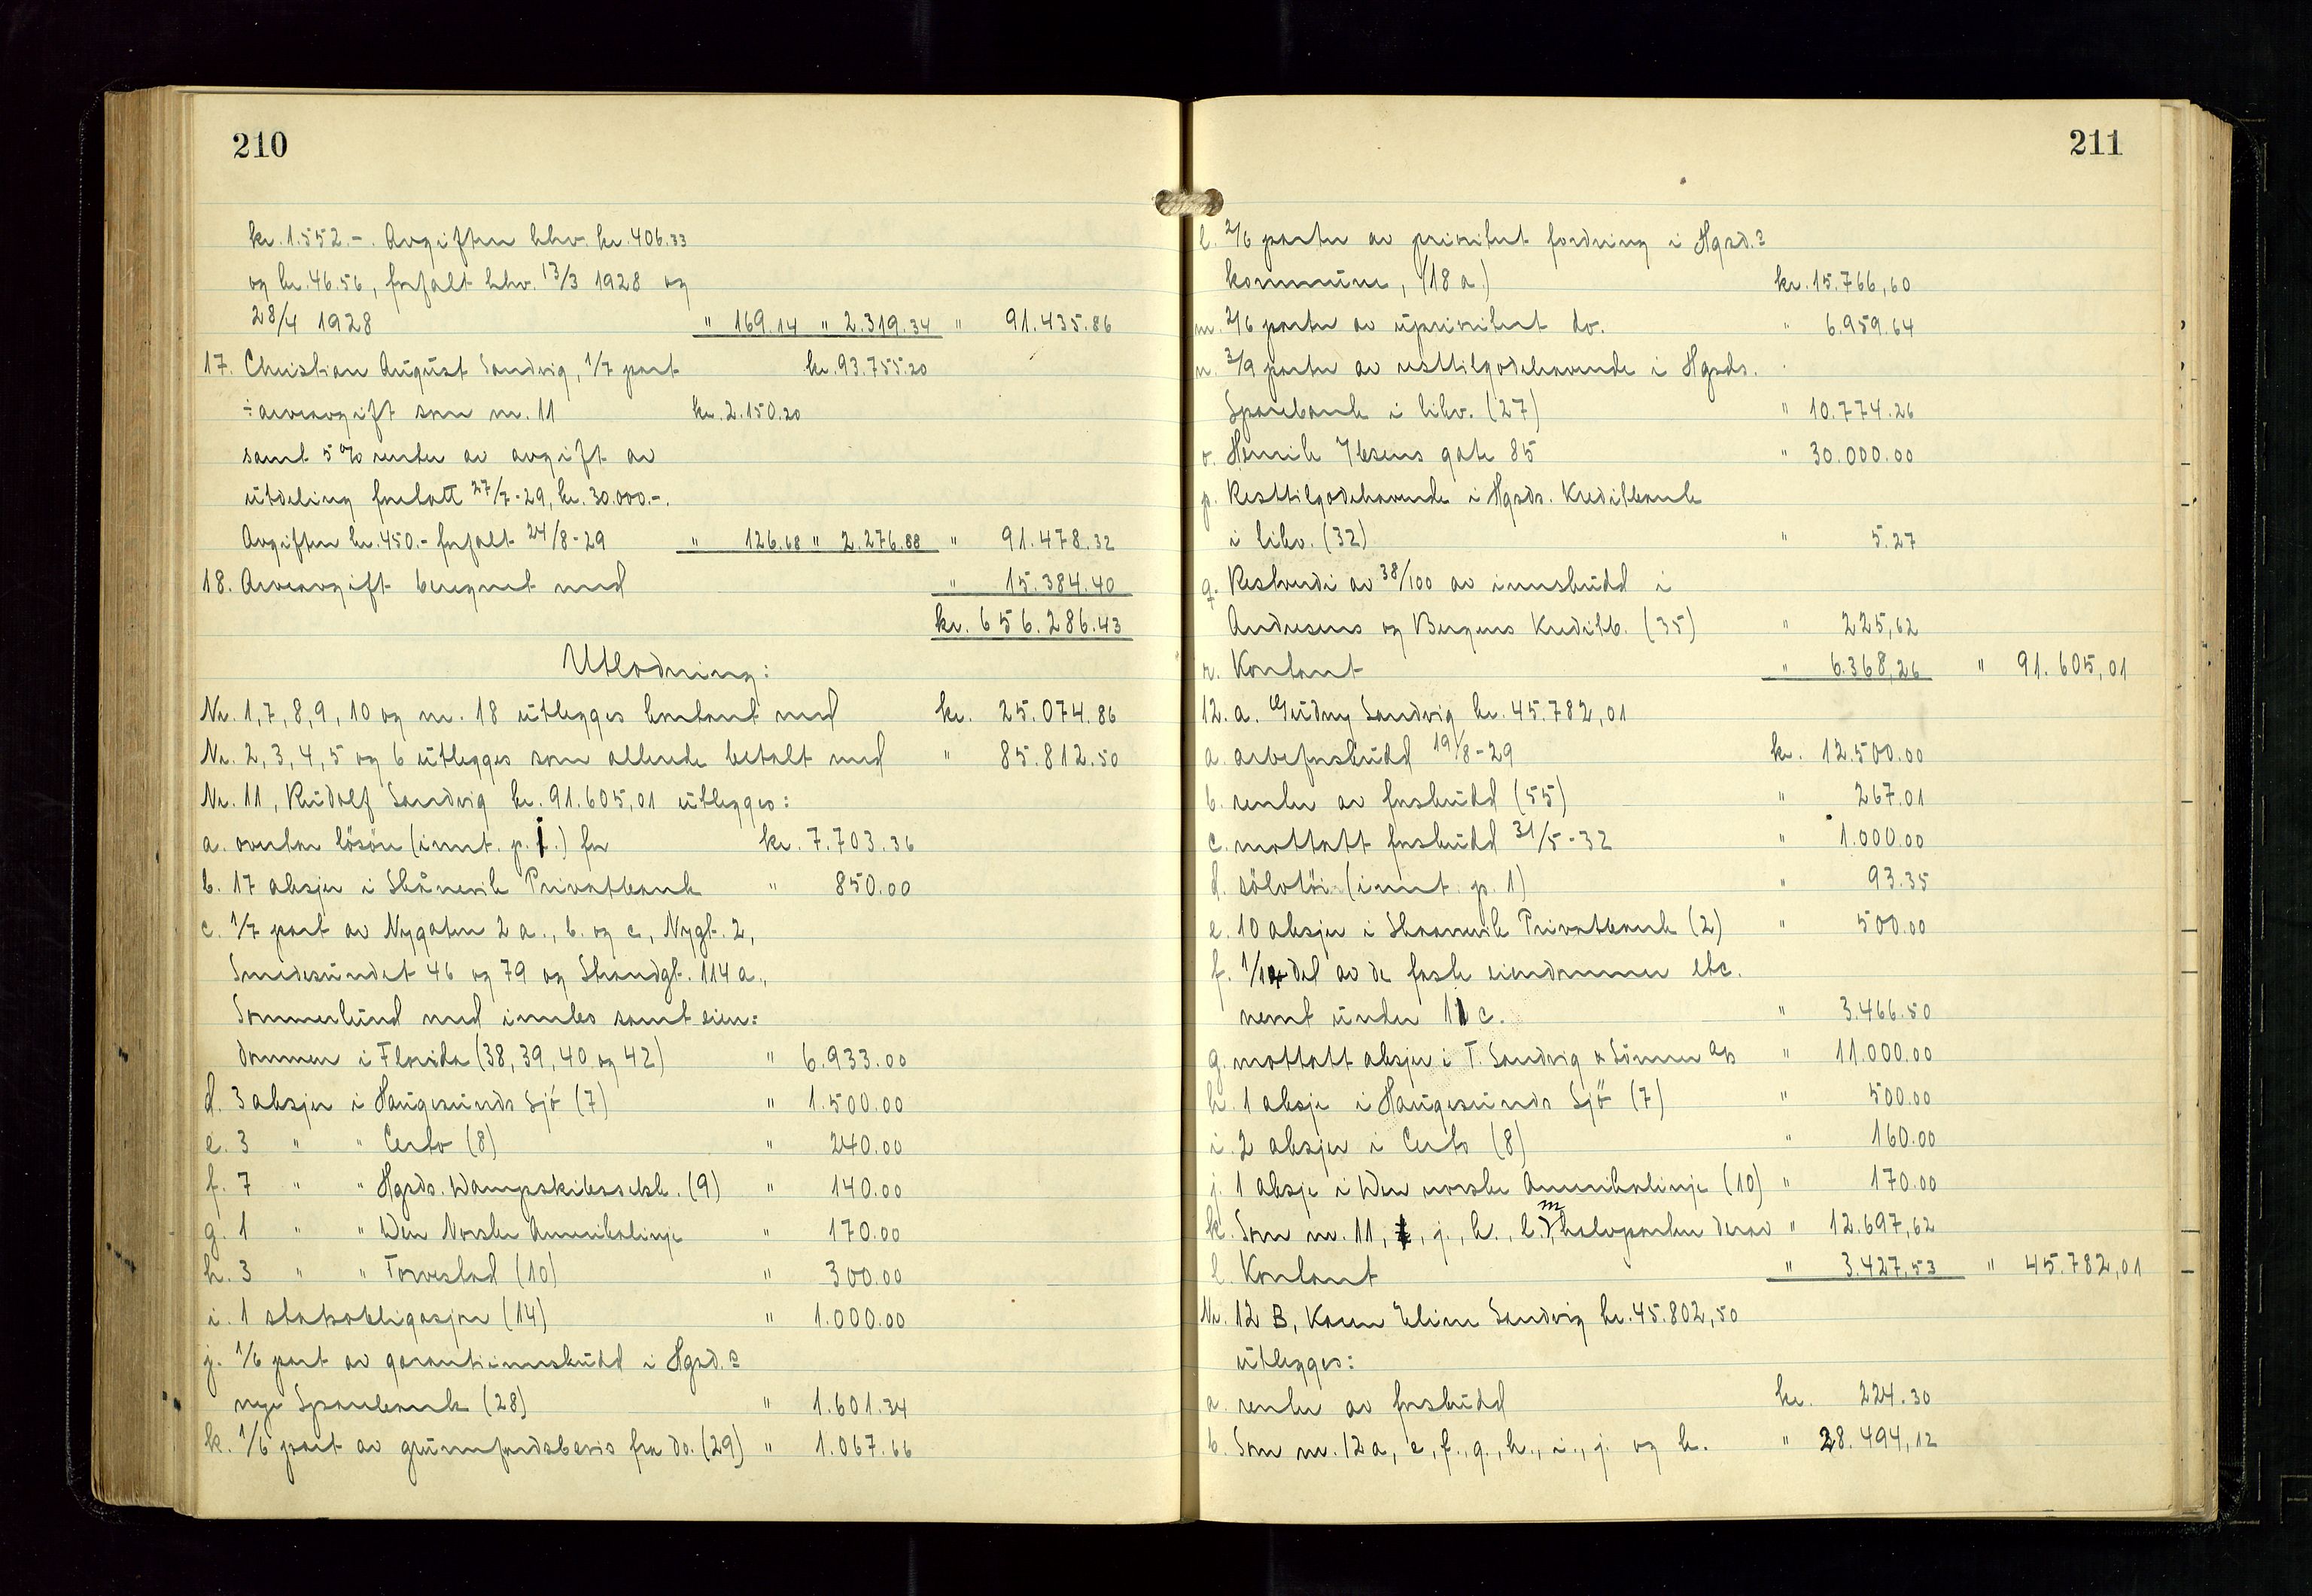 210
kr. 1.552.-. Avgiften bhv. kr. 406.33
og kr. 46.56, forfalt bhv. 13/3 1928 og
28/4 1928 " 169.14 " 2.319.34 " 91.435.86
17. Christian August Sandvig, 1/7 part kr. 93.755.20
÷ arveavgift som nr. 11 kr. 2.150.20
samt 5% renter av avgift av
utdeling foretatt 27/7-29, kr. 30.000.-.
Avgiften kr. 450.- forfalt 24/8-29 " 126.68 " 2.276.88 " 91.478.32
18. Arveavgift beregnet med " 15.384.40
kr. 656.286.43
Utlodning:
Nr. 1, 7, 8, 9, 10 og nr. 18 utlegges kontant med kr. 25.074.86
Nr. 2, 3, 4, 5 og 6 utlegges som allerede betalt med " 85.812.50
Nr. 11, Rudolf Sandvig kr. 91.605,01 utlegges:
a. overtar lösöre (innt. p. 1.) for kr. 7.703.36
b. 17 aksjer i Skånevik Privatbank " 850.00
c. 1/7 part av Nygaten 2 a., b. og c, Nygt. 2,
Smedesundet 46 og 79 og Strandgt. 114 a.,
Sommerlund med innbo samt eien=
dommer i Florida (38, 39, 40 og 42) " 6.933.00
d. 3 aksjer i Haugesunds Sjö (7) " 1.500.00
e. 3 " " Certo (8) " 240.00
f. 7 " " Hgsds. Dampskibsselsk. (9) " 140.00
g. 1 " " Den Norske Amerikalinje " 170.00
h. 3 " " Torvestad (10) " 300.00
i. 1 statsobligasjon (14) " 1.000.00
j. 1/6 part av garantiinnskudd i Hgsd.s
nye Sparebank (28) " 1.601.34
k. 1/6 part av grunnfondsbevis fra do. (29) " 1.067.66
211
l. 2/6 parter av privilert fordring i Hgsd.s
kommune, (18 a.) kr. 15.766,60
m. 2/6 parter av uprivilert do. " 6.959.64
n. 3/9 parter av resttilgodehavende i Hgsds.
Sparebank i likv. (27) " 10.774.26
o. Henrik Ibsens gate 85 " 30.000.00
p. Resttilgodehavende i Hgsds. Kreditbank
i likv. (32) " 5.27
q. Restverdi av 38/100 av innskudd i
Andresens og Bergens Kreditb. (35) " 225,62
r. Kontant " 6.368,26 " 91.605,01
12. a. Gudny Sandvig kr. 45.782,01
a. arveforskudd 19/8-29 kr. 12.500.00
b. renter av forskudd (55) " 267.01
c. mottatt forskudd 31/5-32 " 1.000.00
d. sölvtöi (innt. p. 1) " 93.35
e. 10 aksjer i Skaanevik Privatbank (2) " 500.00
f. 1/14 del av de faste eiendommer etc.
nevnt under 11 c. " 3.466.50
g. mottatt aksjer i T. Sandvig & Sönner A/s " 11.000.00
h. 1 aksje i Haugesunds Sjö (7) " 500.00
i. 2 aksjer i Certo (8) " 160.00
j. 1 aksje i Den norske Amerikalinje (10) " 170.00
k. Som nr. 11, i, j., k., l., m halvparten derav " 12.697,62
l. Kontant " 3.427,53 " 45.782,01
Nr. 12 B, Karen Eline Sandvig kr. 45.802,50
utlegges:
a. renter av forskudd kr. 224.30
b. Som nr. 12 a, e, f., g., h., i., j. og k. " 28.494,12